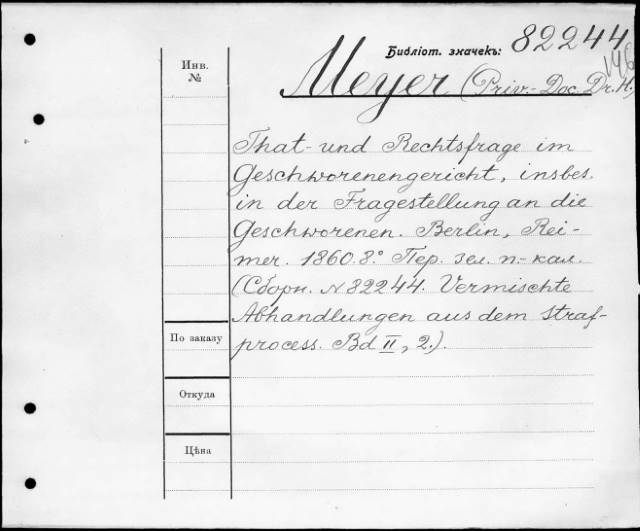 Библіот. значекъ: 82244
146
Инв.
№
Meyer (Priv.-Doc. Dr. H.)
That- und Rechtsfrage im
Geschworenengericht, insbes.
in der Fragestellung an die
Geschworenen. Berlin, Rei-
mer. 1860. 8.° Пер. зел. п.-кал.
(Сборн. N 82244. Vermischte
Abhandlungen aus dem Straf-
process. Bd II, 2.).
По заказу
Откуда
Цѣна